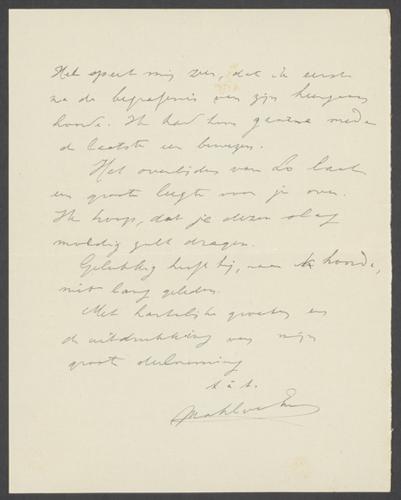 Het speet mij zeer, dat ik eerst
na de begrafenis van zijn heengaan
hoorde. Ik had hem gaarne mede
de laatste eer bewezen.
Het overlijden van Lo laat
een groote leegte voor je over.
Ik hoop, dat je dezen slag
moedig zult dragen.
Gelukkig heeft hij, naar ik hoorde,
niet lang geleden.
Met hartelijke groeten en
de uitdrukking van mijn
groote deelneming
t. à t.